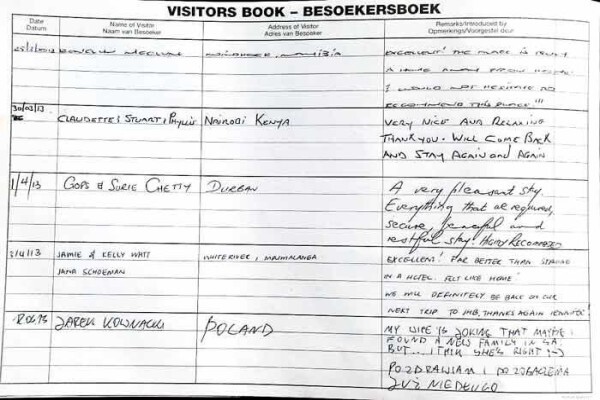 VISITORS BOOK – BESOEKERSBOEK
Date
Datum
Name of Visitor
Naam van Besoeker
Address of Visitor
Adres van Besoeker
Remarks/Introduced by
Opmerkings/Voorgestel deur
WINDHOEK, NAMIBIA
EXCELLENT! THE PLACE IS TRULY
A HOME AWAY FROM HOME.
I WOULD NOT HESITATE TO
RECOMMEND THIS PLACE!!!
30/03/13
CLAUDETTE, STUART, PHYLLIS
NAIROBI KENYA
VERY NICE AND RELAXING
THANK YOU. WILL COME BACK
AND STAY AGAIN AND AGAIN
1/4/13
GOPS & SURIE CHETTY
DURBAN
A very pleasant stay.
Everything that we required,
secure, peaceful and
restful stay! HIGHLY RECOMMENDED
2/4/13
JAMIE & KELLY WATT
JANA SCHOEMAN
WHITE RIVER, MPUMALANGA
EXCELLENT! FAR BETTER THAN STAYING
IN A HOTEL. FELT LIKE HOME!
WE WILL DEFINITELY BE BACK ON OUR
NEXT TRIP TO JHB, THANKS AGAIN
JAREK KOWNACKI
POLAND
MY WIFE IS JOKING THAT MAYBE I
FOUND A NEW FAMILY IN SA.
BUT....I THINK SHE'S RIGHT :-)
POZDRAWIAM I DO ZOBACZENIA
JUŻ NIEDŁUGO